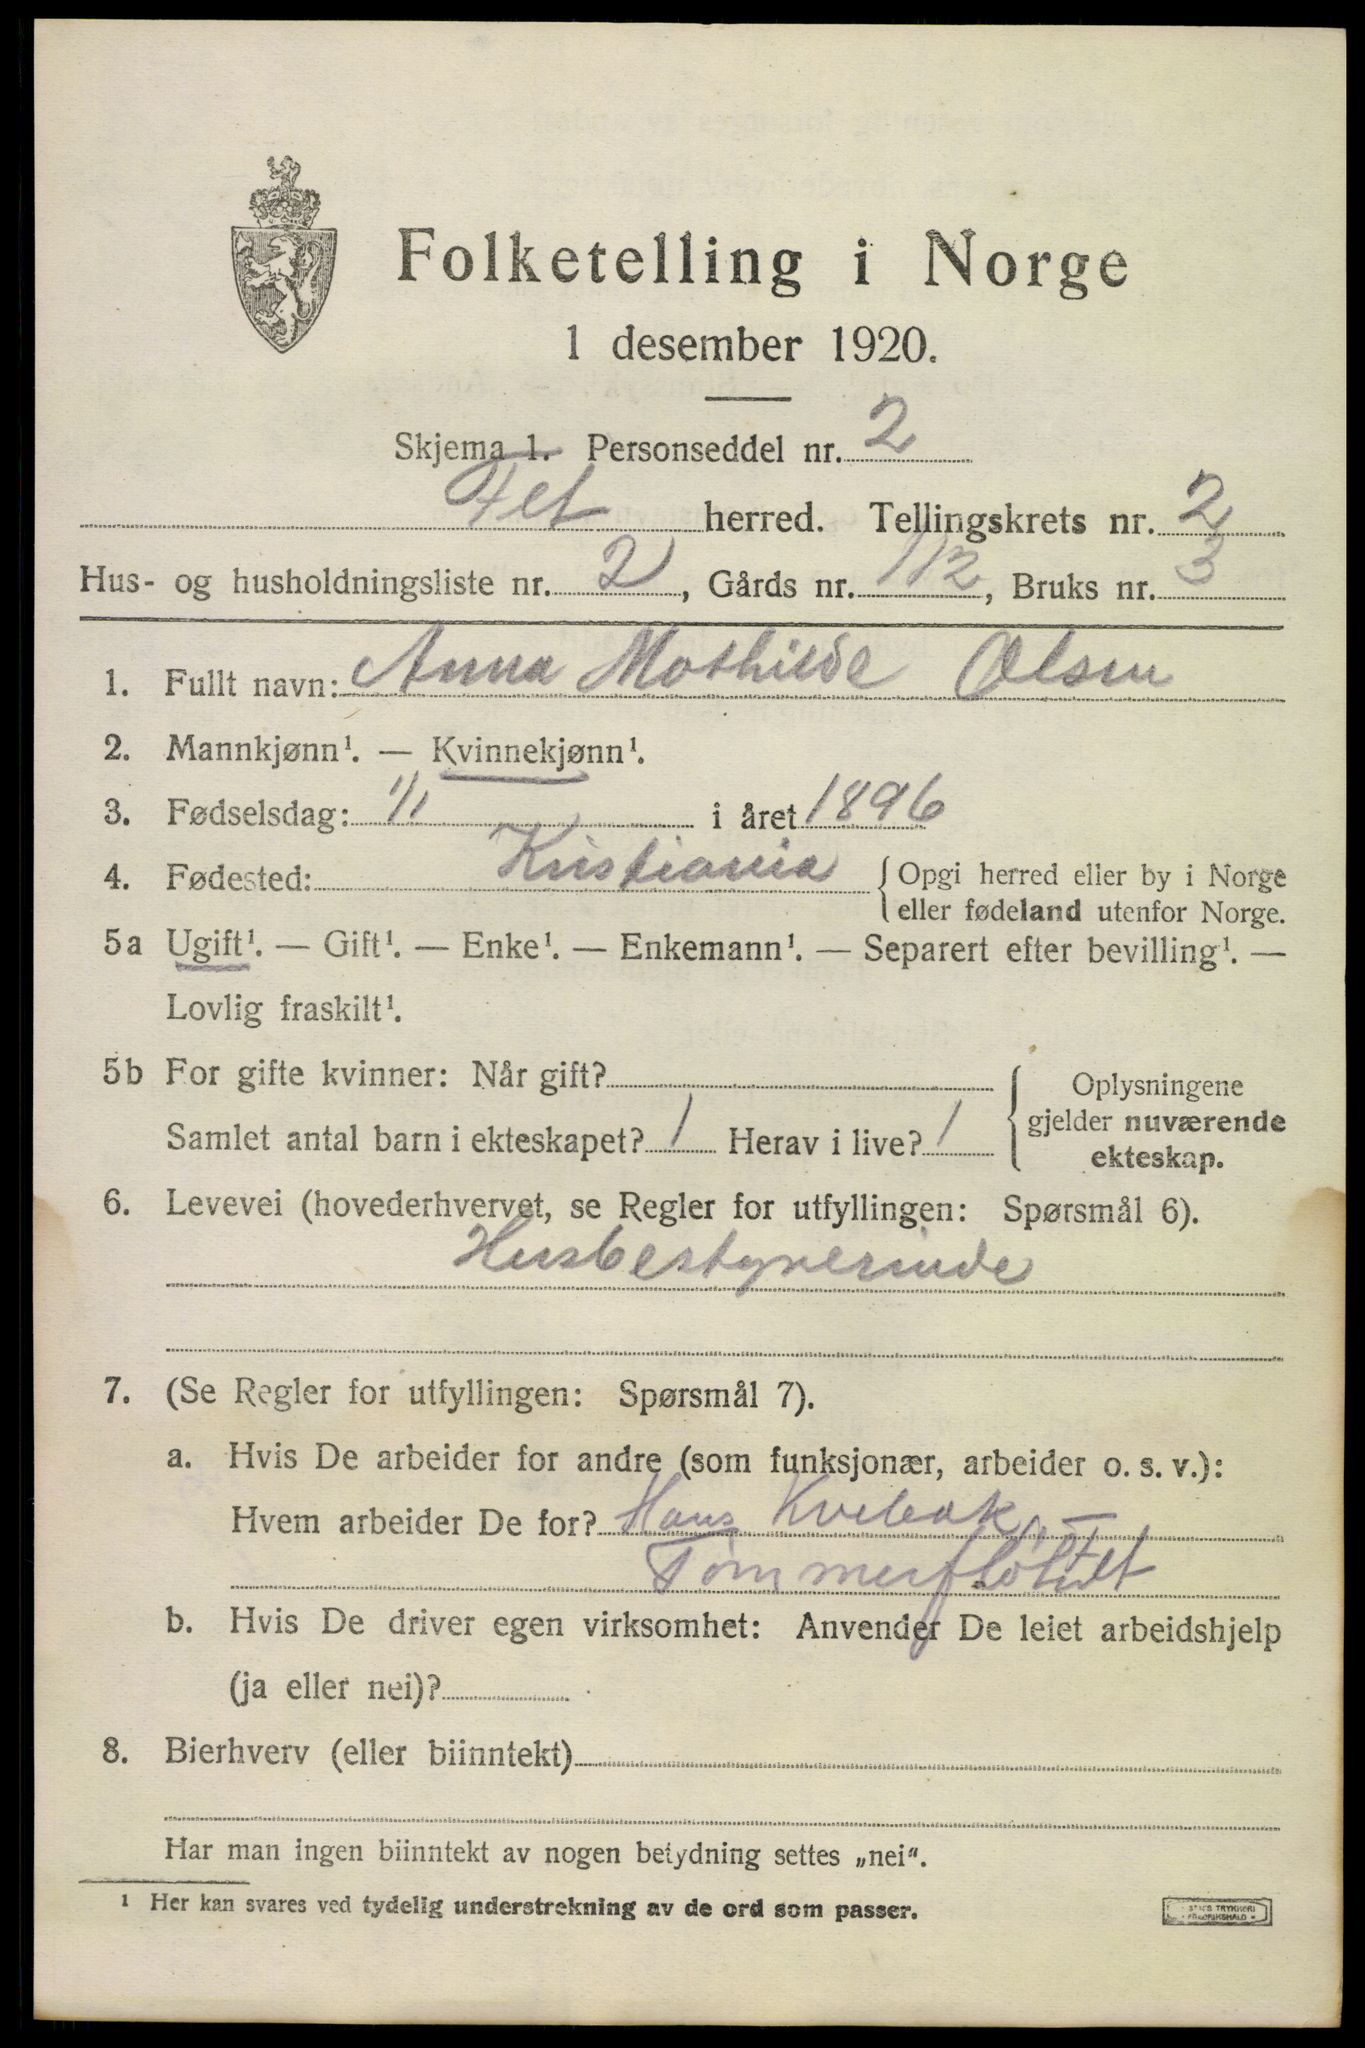 Folketelling i Norge
1 desember 1920.
Skjema 1. Personseddel nr. 2
Fet herred. Tellingskrets nr. 2
Hus- og husholdningsliste nr. 2, Gårds nr. 112, Bruks nr. 3
1. Fullt navn: Anna Mathilde Olsen
2. Mannkjønn¹. — Kvinnekjønn¹.
3. Fødselsdag: 1/1 i året 1896
4. Fødested: Kristiania { Opgi herred eller by i Norge
eller fødeland utenfor Norge.
5a Ugift¹. — Gift¹. — Enke¹. — Enkemann¹. — Separert efter bevilling¹. —
Lovlig fraskilt¹.
5b For gifte kvinner: Når gift?
Samlet antal barn i ekteskapet? 1 Herav i live? 1
Oplysningene
gjelder nuværende
ekteskap.
6. Levevei (hovederhvervet, se Regler for utfyllingen: Spørsmål 6).
Husbestyrerinde
7. (Se Regler for utfyllingen: Spørsmål 7).
a. Hvis De arbeider for andre (som funksjonær, arbeider o. s. v.):
Hvem arbeider De for? Hans
b. Hvis De driver egen virksomhet: Anvender De leiet arbeidshjelp
(ja eller nei)?
8. Bierhverv (eller biinntekt)
Har man ingen biinntekt av nogen betydning settes „nei".
¹ Her kan svares ved tydelig understrekning av de ord som passer.
TRYKKERI
FREDRIKSHALD